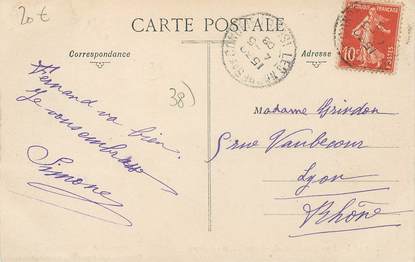 20 €
CARTE POSTALE
Correspondance
Adresse
RÉPUBLIQUE FRANÇAISE
10
POSTES
38)
Fernand va bien.
Je vous embrasse
Simone
Madame Grindon
5 rue Vaubecour
Lyon
Rhône